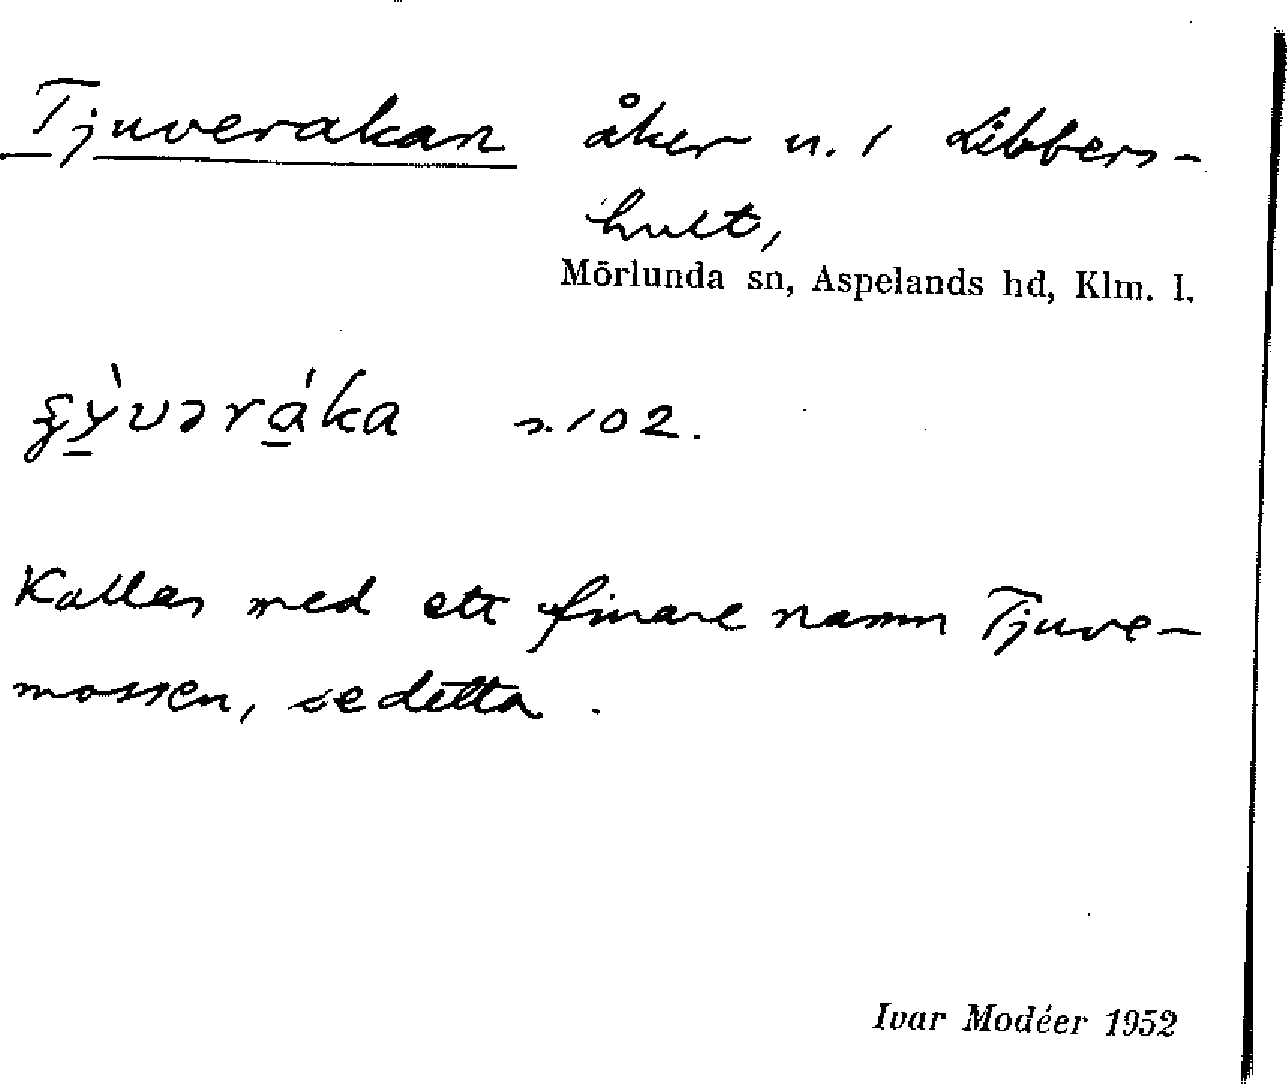 Tjuverakan åker u. 1 Libbers-
hult,
Mörlunda sn, Aspelands hd, Klm. l.
s. 102.
Kallas med ett finare namn Tjuve-
mossen, se detta.
Ivar Modéer 1952